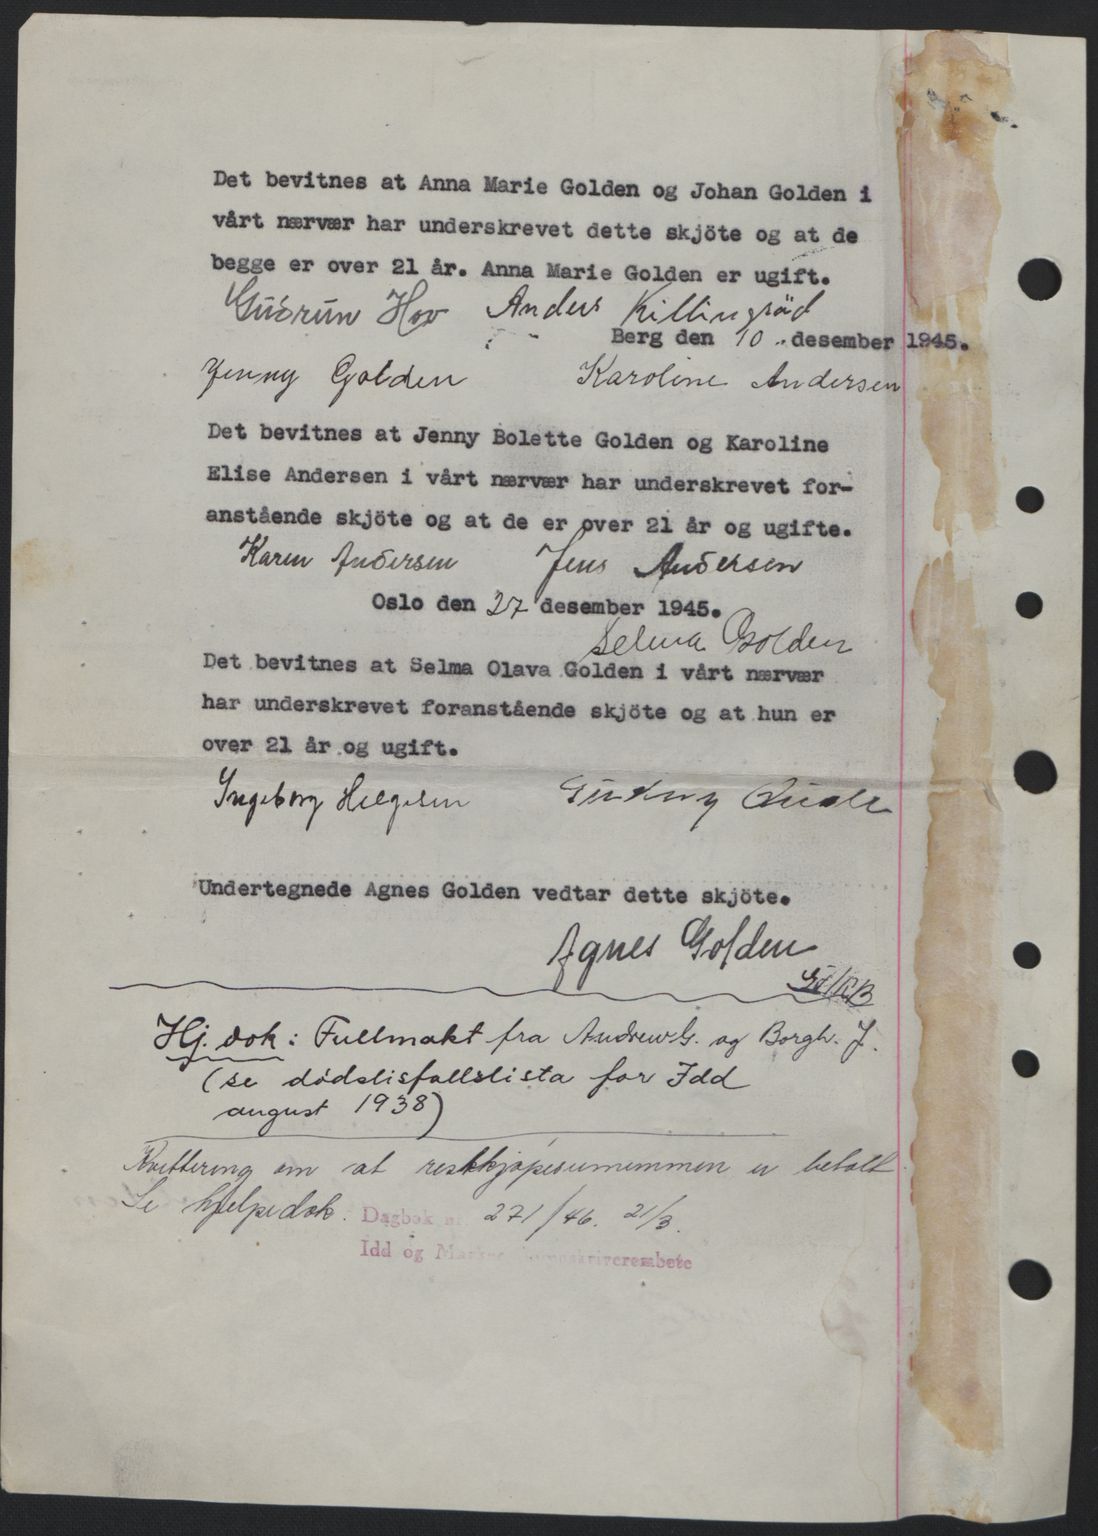 Det bevitnes at Anna Marie Golden og Johan Golden i
vårt nærvær har underskrevet dette skjöte og at de
begge er over 21 år. Anna Marie Golden er ugift.
Gudrun Hov Anders Killingröd
Berg den 10. desember 1945.
Jenny Golden Karoline Andersen
Det bevitnes at Jenny Bolette Golden og Karoline
Elise Andersen i vårt nærvær har underskrevet for-
anstående skjöte og at de er over 21 år og ugifte.
Karen Andersen Jens Andersen
Oslo den 27 desember 1945.
Selma Golden
Det bevitnes at Selma Olava Golden i vårt nærvær
har underskrevet foranstående skjöte og at hun er
over 21 år og ugift.
Ingeborg Helgesen Gudny
Undertegnede Agnes Golden vedtar dette skjöte.
Agnes Golden
Hj. dok: Fullmakt fra Andrew G. og Borgh. J.
(se dødslisfallslista for Idd
august 1938)
Kvittering om at restkjøpesummen er betalt.
Se hjelpedok. Dagbok nr. 271/46. 21/3.
Idd og